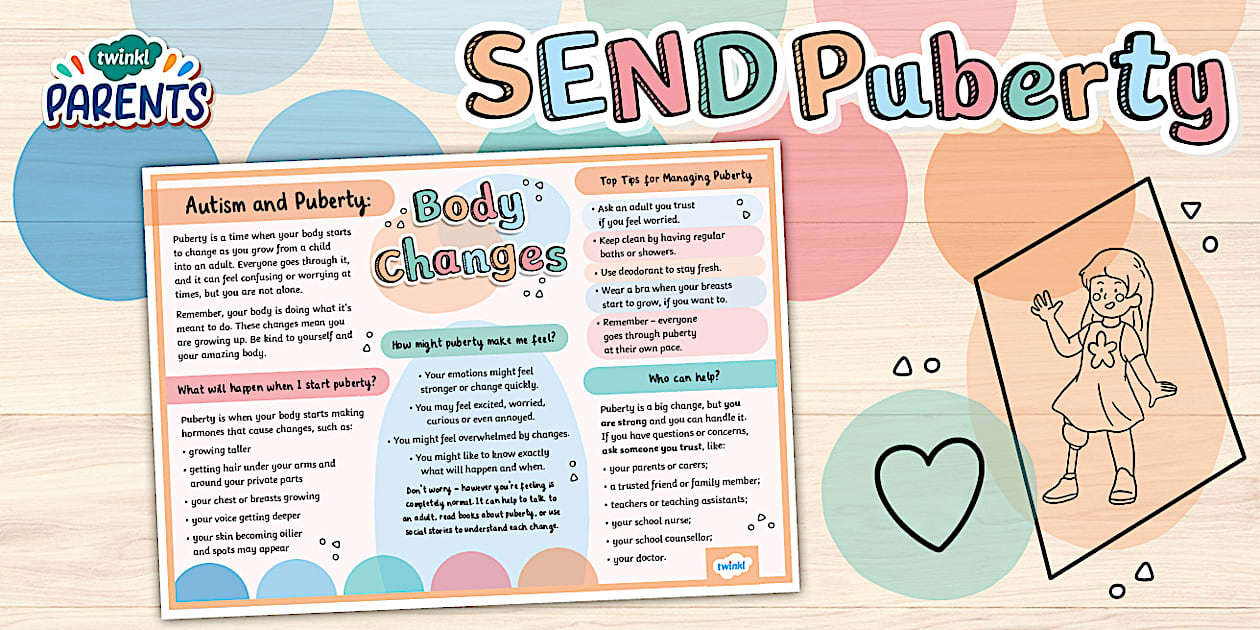 twinkl
PARENTS
SEND Puberty
Autism and Puberty:
Body
Changes
Puberty is a time when your body starts
to change as you grow from a child
into an adult. Everyone goes through it,
and it can feel confusing or worrying at
times, but you are not alone.
Remember, your body is doing what it's
meant to do. These changes mean you
are growing up. Be kind to yourself and
your amazing body.
What will happen when I start puberty?
Puberty is when your body starts making
hormones that cause changes, such as:
• growing taller
• getting hair under your arms and
around your private parts
• your chest or breasts growing
• your voice getting deeper
• your skin becoming oilier
and spots may appear
How might puberty make me feel?
• Your emotions might feel
stronger or change quickly.
• You may feel excited, worried,
curious or even annoyed.
• You might feel overwhelmed by changes.
• You might like to know exactly
what will happen and when.
Don't worry – however you're feeling is
completely normal. It can help to talk to
an adult, read books about puberty, or use
social stories to understand each change.
Top Tips for Managing Puberty
• Ask an adult you trust
if you feel worried.
• Keep clean by having regular
baths or showers.
• Use deodorant to stay fresh.
• Wear a bra when your breasts
start to grow, if you want to.
• Remember – everyone
goes through puberty
at their own pace.
Who can help?
Puberty is a big change, but you
are strong and you can handle it.
If you have questions or concerns,
ask someone you trust, like:
• your parents or carers;
• a trusted friend or family member;
• teachers or teaching assistants;
• your school nurse;
• your school counsellor;
• your doctor.
twinkl